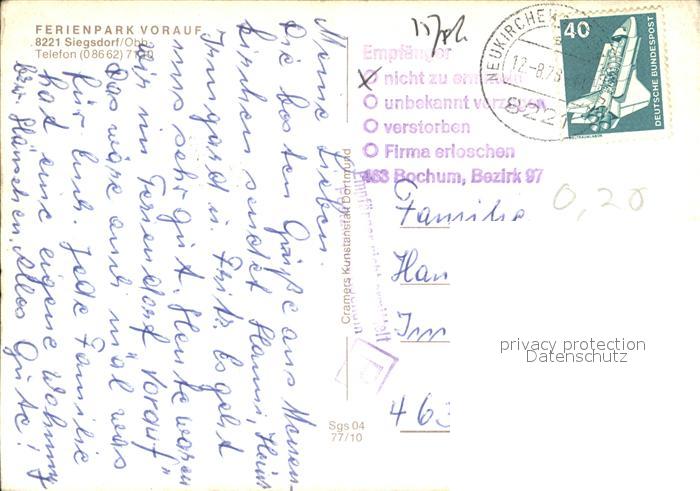 FERIENPARK VORAUF
8221 Siegsdorf/Obb.
Telefon (08662)
Meine Lieben.
Die besten Grüße aus Neuen-
kirchen sendet Hanni, Heinz
Irmgard u. Fritz. Es geht
uns sehr gut. Heute waren
wir im Feriendorf Vorauf"
das wäre auch mal was
für Euch. Jede Familie
hat eine eigene Wohnung
bzw. Häuschen. Alles Gute!
Cramers Kunstanstalt Dortmund
Sgs 04
77/10
Empfänger
nicht zu ermitteln
unbekannt verzogen
verstorben
Firma erloschen
463 Bochum, Bezirk 97
NEUKIRCHEN
12.-8.78
8221
40
DEUTSCHE BUNDESPOST
WELTRAUMLABOR
0,20
Familie
Han
Im
463
privacy protection
Datenschutz